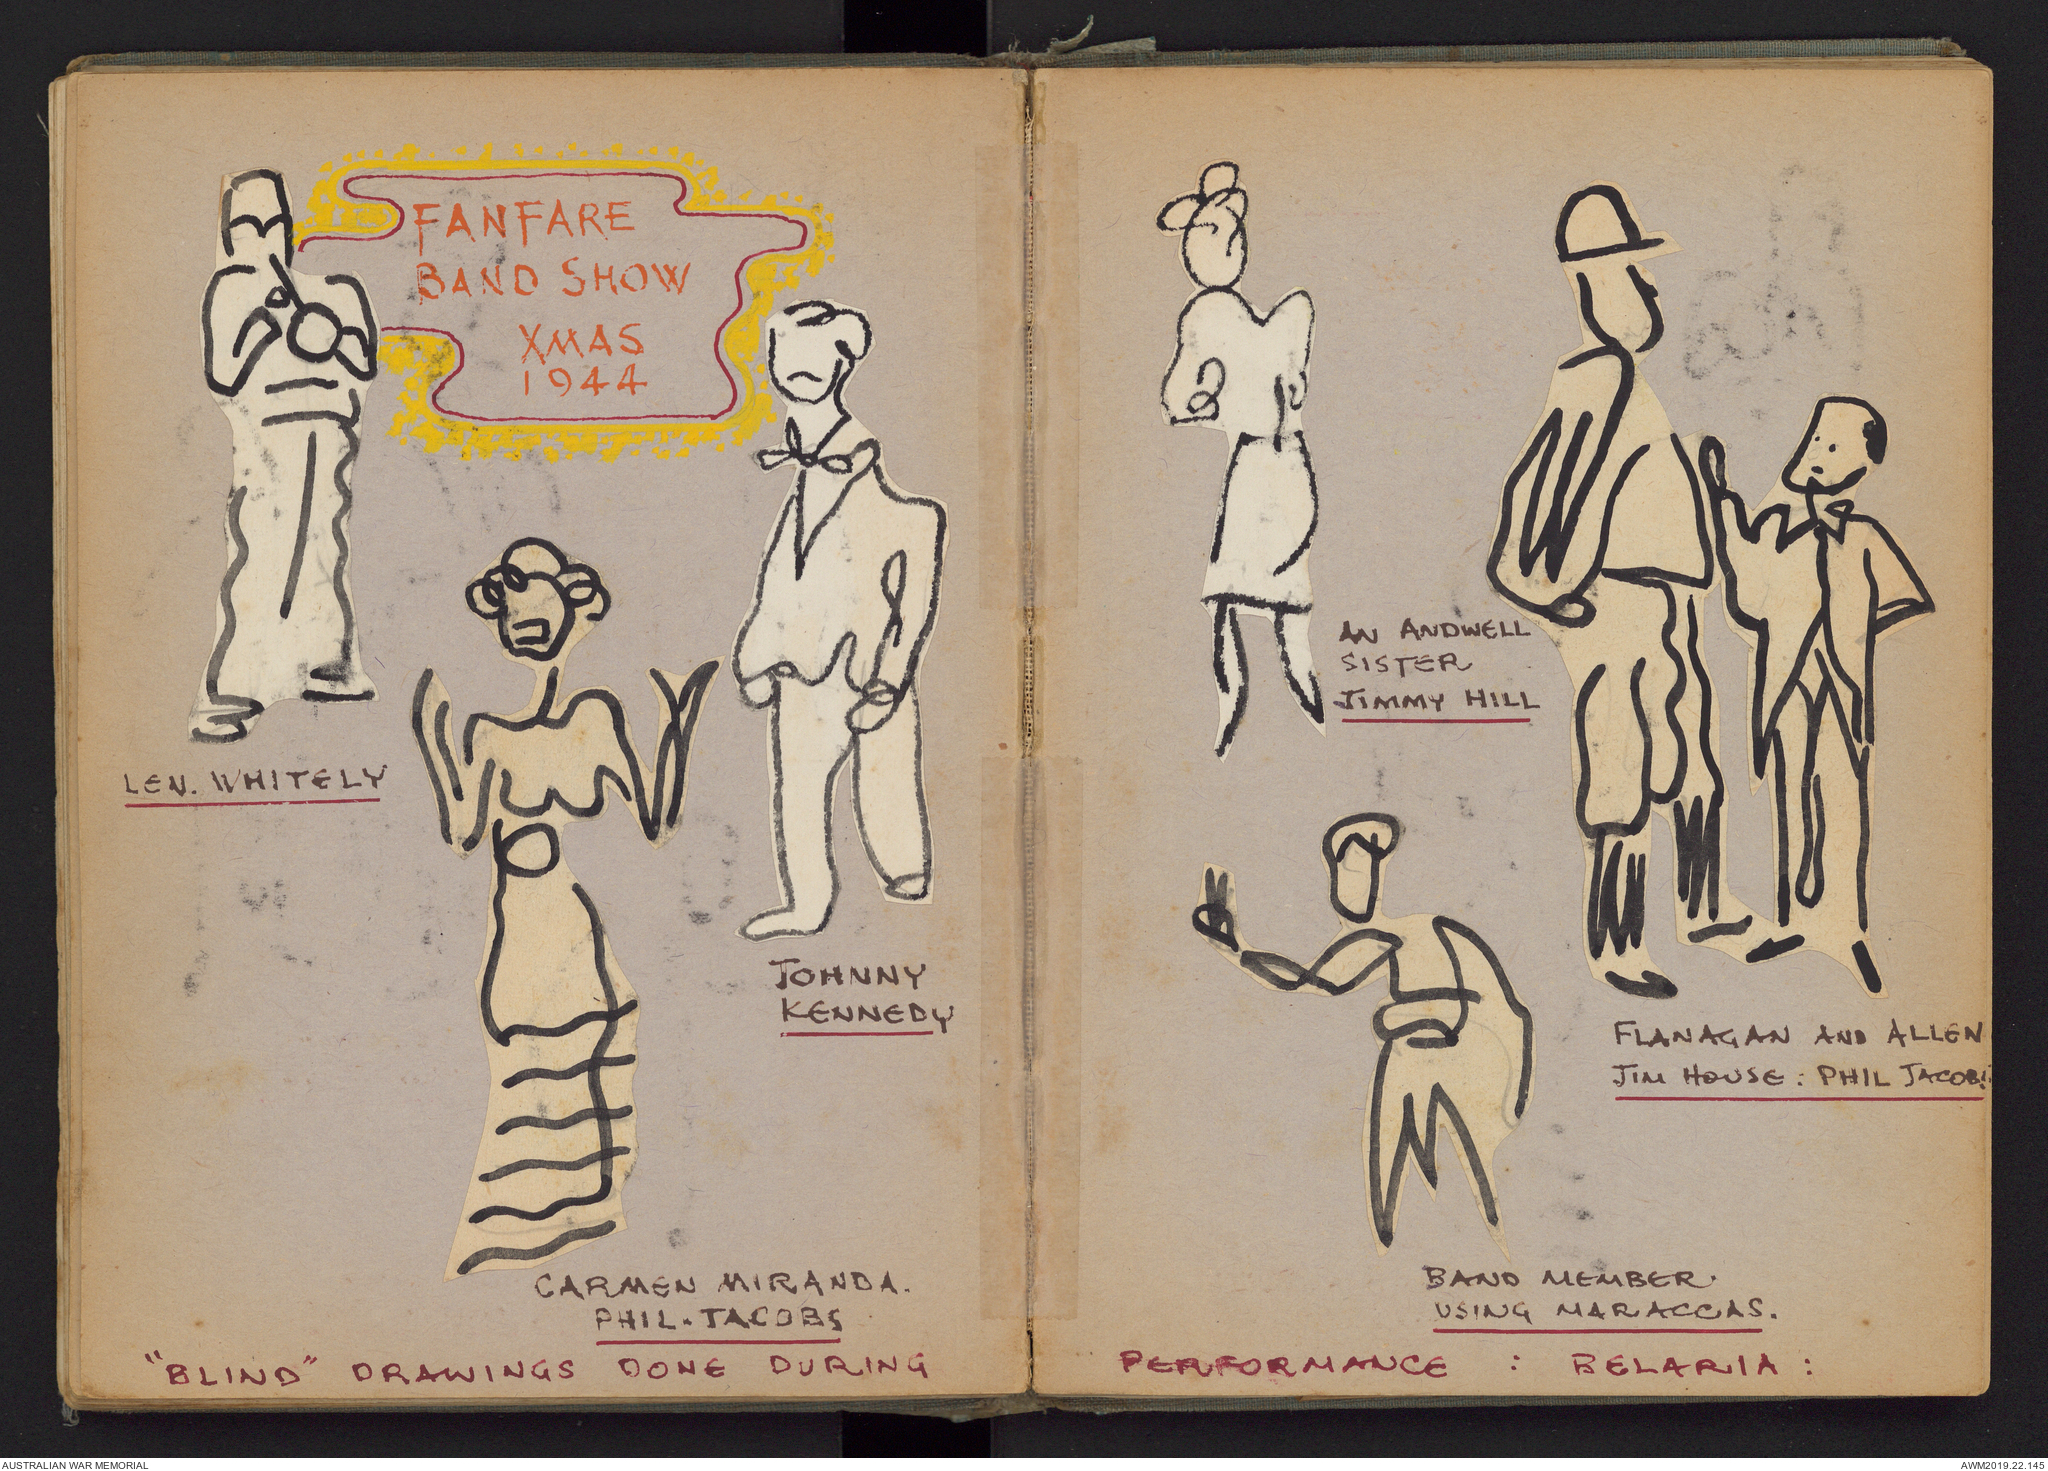 FANFARE
BAND SHOW
XMAS
1944
LEN. WHITELY
JOHNNY
KENNEDY
CARMEN MIRANDA.
PHIL. JACOBS
"BLIND" DRAWINGS DONE DURING
AN ANDWELL
SISTER
JIMMY HILL
FLANAGAN AND ALLEN
JIM HOUSE : PHIL JACOBS
BAND MEMBER.
USING MARACCAS.
PERFORMANCE : BELARIA :
AUSTRALIAN WAR MEMORIAL
AWM2019.22.145